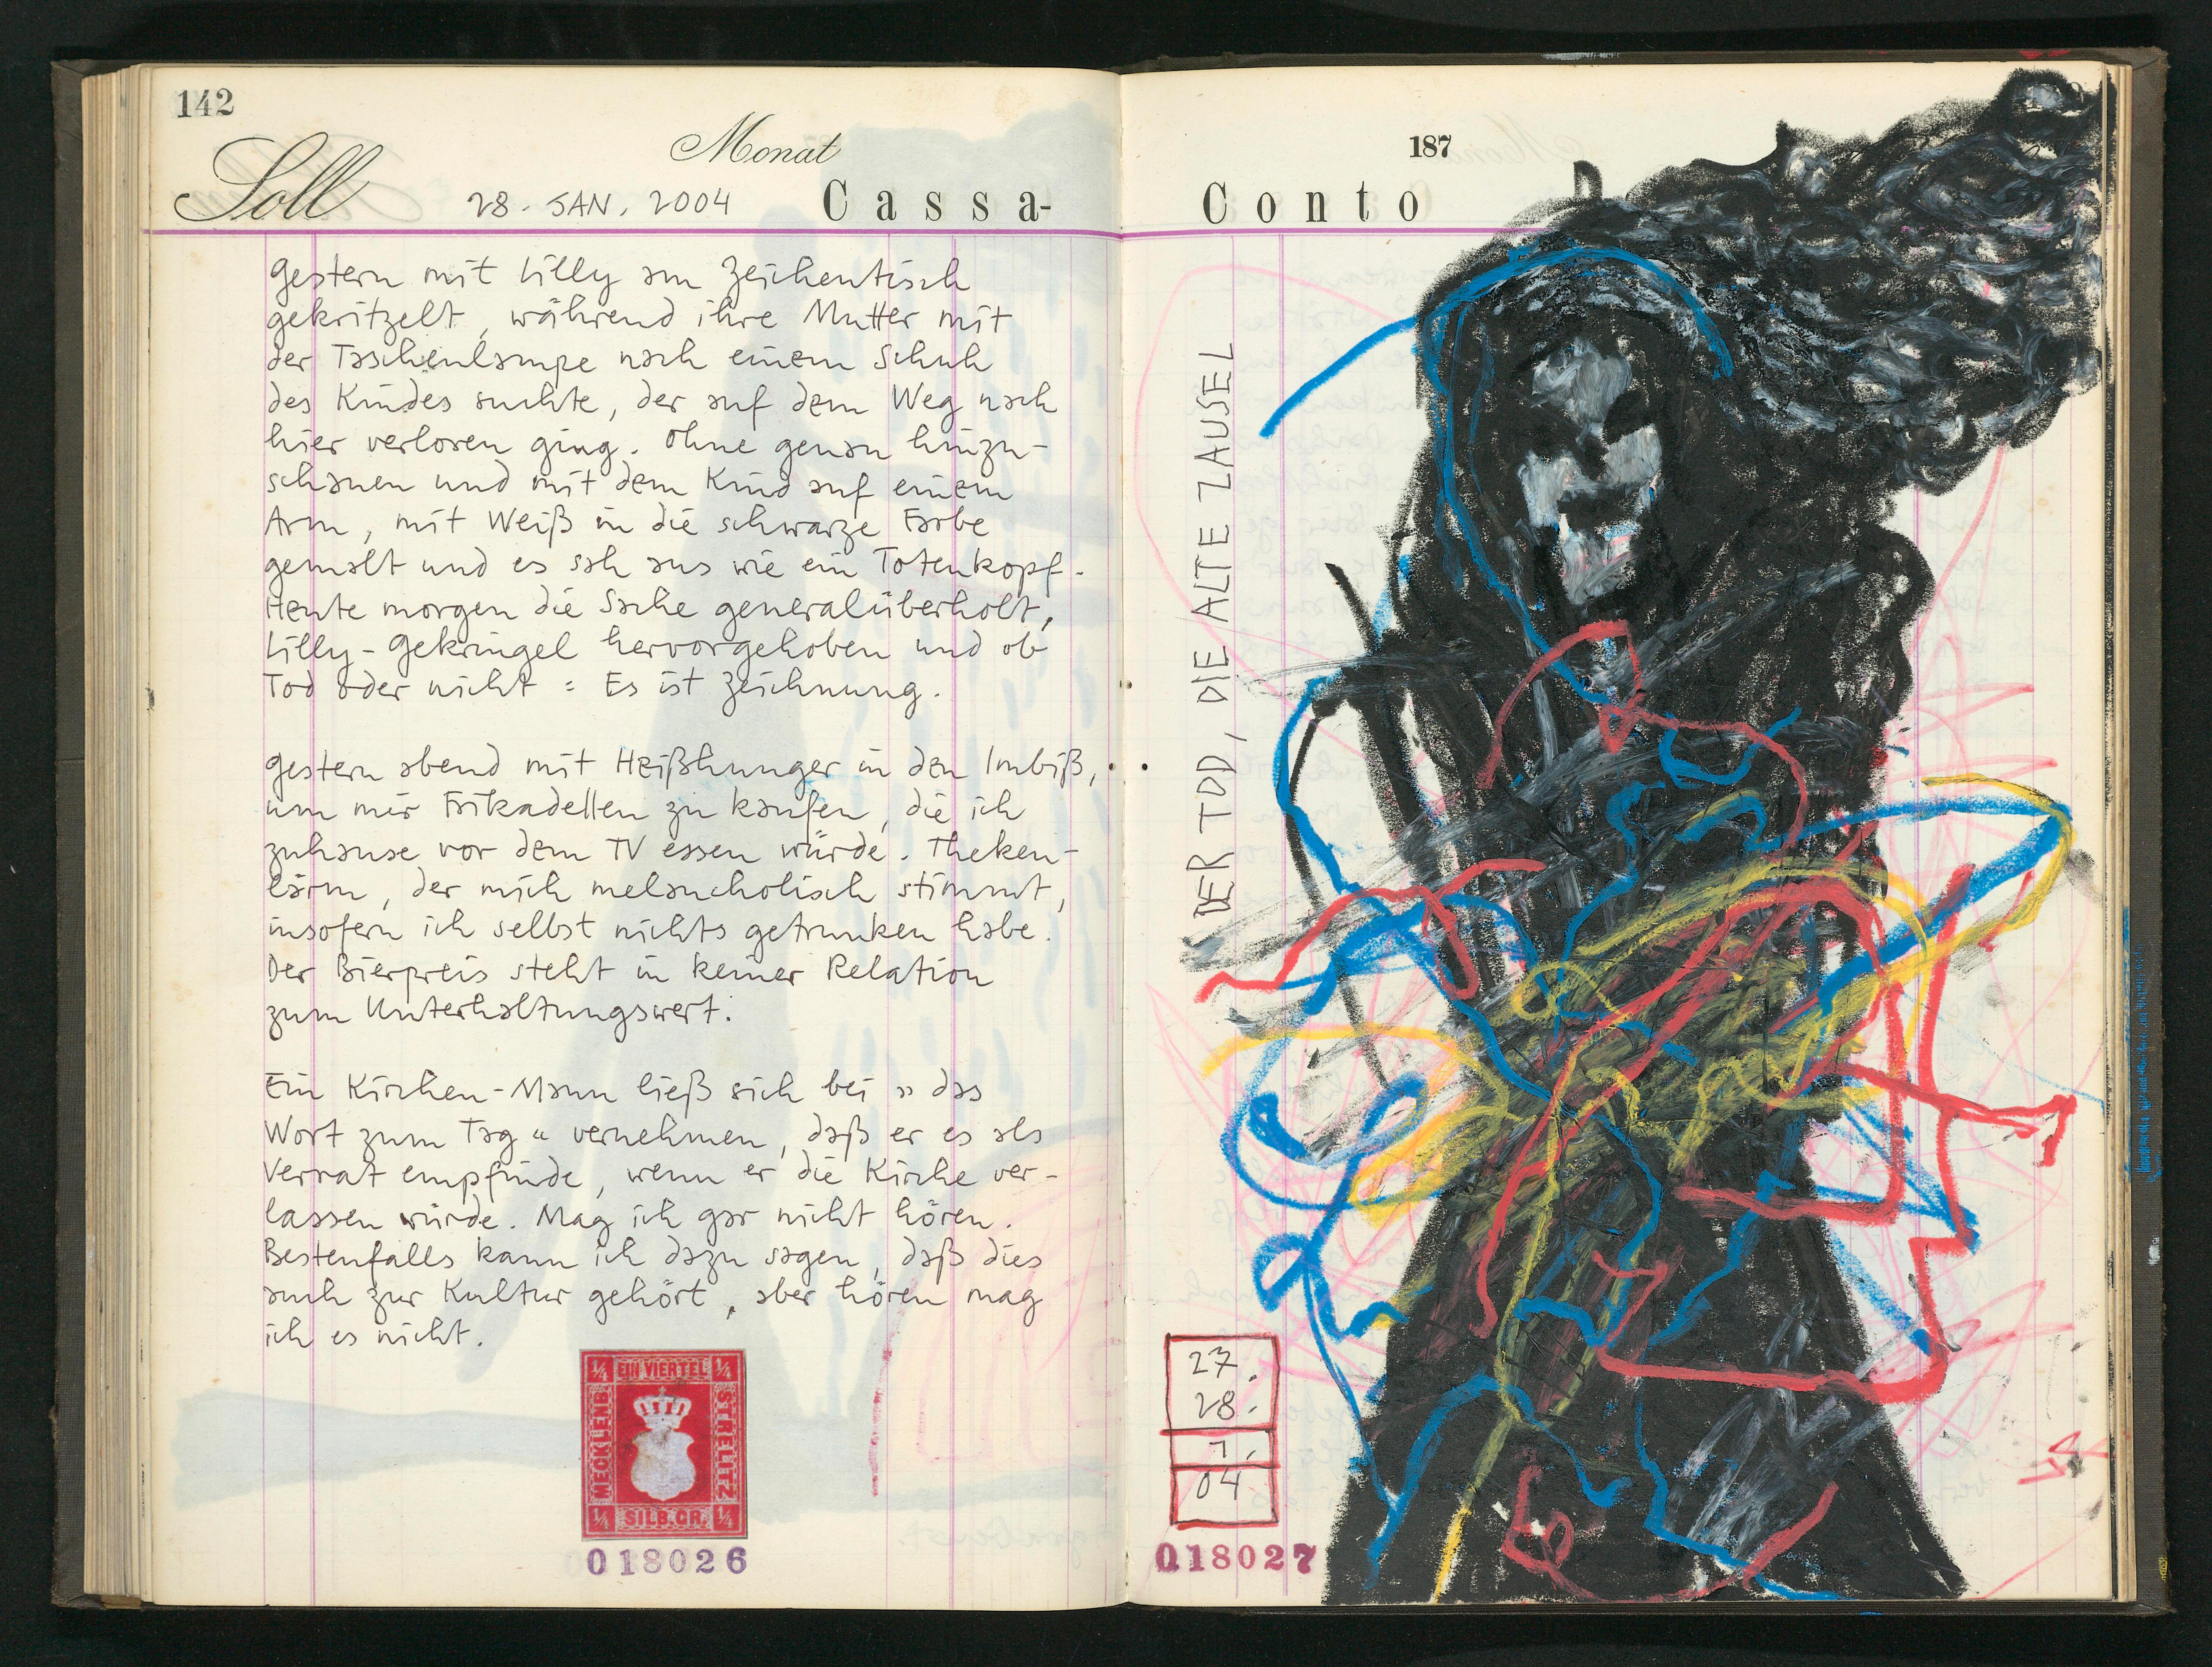 142
Monat
Soll 28. JAN. 2004 Cassa-
Gestern mit Lilly am Zeichentisch
gekritzelt, während ihre Mutter mit
der Taschenlampe nach einem Schuh
des Kindes suchte, der auf dem Weg nach
hier verloren ging. Ohne genau hinzu-
schauen und mit dem Kind auf einem
Arm, mit Weiß in die schwarze Farbe
gemalt und es sah aus wie ein Totenkopf.
Heute morgen die Sache generalüberholt,
Lilly-Gekringel hervorgehoben und ob
Tod oder nicht: Es ist Zeichnung.
Gestern abend mit Heißhunger in den Imbiß,
um mir Frikadellen zu kaufen, die ich
zuhause vor dem TV essen würde. Theken-
lärm, der mich melancholisch stimmt,
insofern ich selbst nichts getrunken habe.
Der Bierpreis steht in keiner Relation
zum Unterhaltungswert.
Ein Kirchen-Mann ließ sich bei „das
Wort zum Tag“ vernehmen, daß er es als
Verrat empfinde, wenn er die Kirche ver-
lassen würde. Mag ich gar nicht hören.
Bestenfalls kann ich dazu sagen, daß dies
auch zur Kultur gehört, aber hören mag
ich es nicht.
1/4 EIN VIERTEL 1/4
MECKLENB
STRELITZ
1/4 SILB.GR. 1/4
018026
187
Conto
DER TOD, DIE ALTE ZAUSEL
27.
28.
1.
04
018027